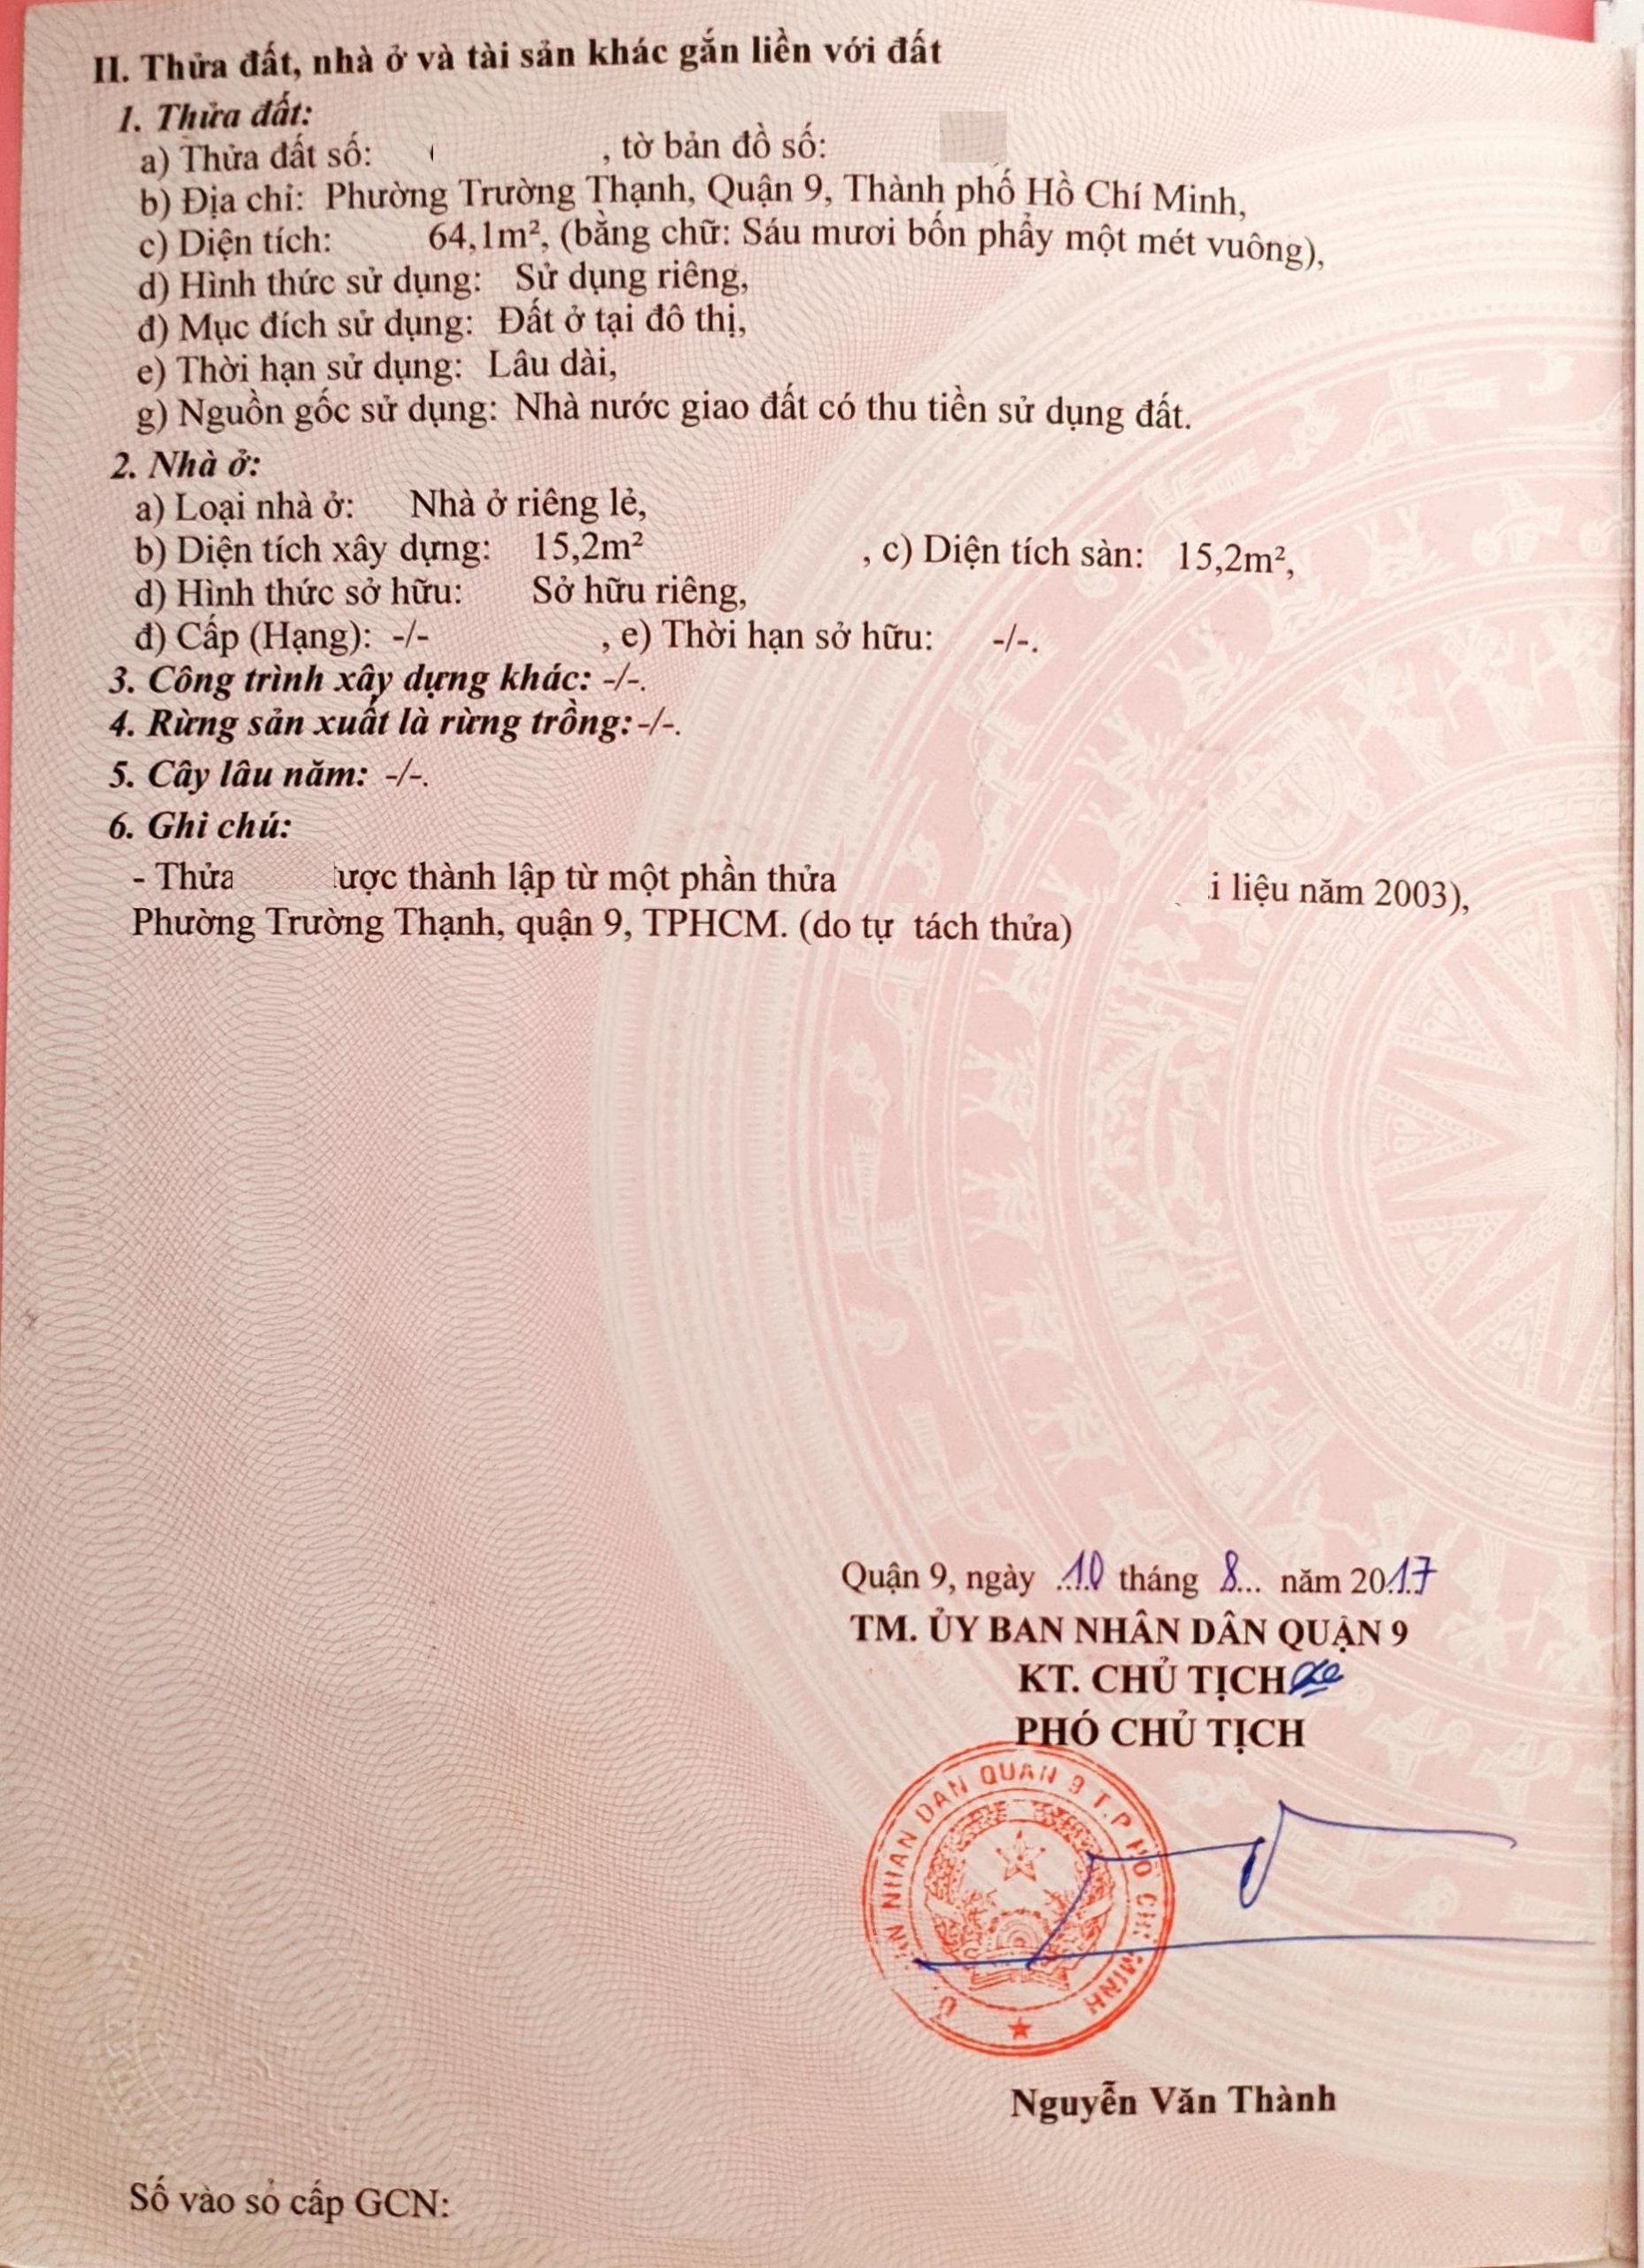 II. Thửa đất, nhà ở và tài sản khác gắn liền với đất
1. Thửa đất:
a) Thửa đất số: , tờ bản đồ số:
b) Địa chỉ: Phường Trường Thạnh, Quận 9, Thành phố Hồ Chí Minh,
c) Diện tích: 64,1m², (bằng chữ: Sáu mươi bốn phẩy một mét vuông),
d) Hình thức sử dụng: Sử dụng riêng,
đ) Mục đích sử dụng: Đất ở tại đô thị,
e) Thời hạn sử dụng: Lâu dài,
g) Nguồn gốc sử dụng: Nhà nước giao đất có thu tiền sử dụng đất.
2. Nhà ở:
a) Loại nhà ở: Nhà ở riêng lẻ,
b) Diện tích xây dựng: 15,2m² , c) Diện tích sàn: 15,2m²,
d) Hình thức sở hữu: Sở hữu riêng,
đ) Cấp (Hạng): -/- , e) Thời hạn sở hữu: -/-.
3. Công trình xây dựng khác: -/-.
4. Rừng sản xuất là rừng trồng: -/-.
5. Cây lâu năm: -/-.
6. Ghi chú:
- Thửa ược thành lập từ một phần thửa i liệu năm 2003),
Phường Trường Thạnh, quận 9, TPHCM. (do tự tách thửa)
Quận 9, ngày 10 tháng 8 năm 2017
TM. ỦY BAN NHÂN DÂN QUẬN 9
KT. CHỦ TỊCH
PHÓ CHỦ TỊCH
NHÂN DÂN QUẬN 9 T.P HỒ CHÍ MINH
Nguyễn Văn Thành
Số vào sổ cấp GCN: